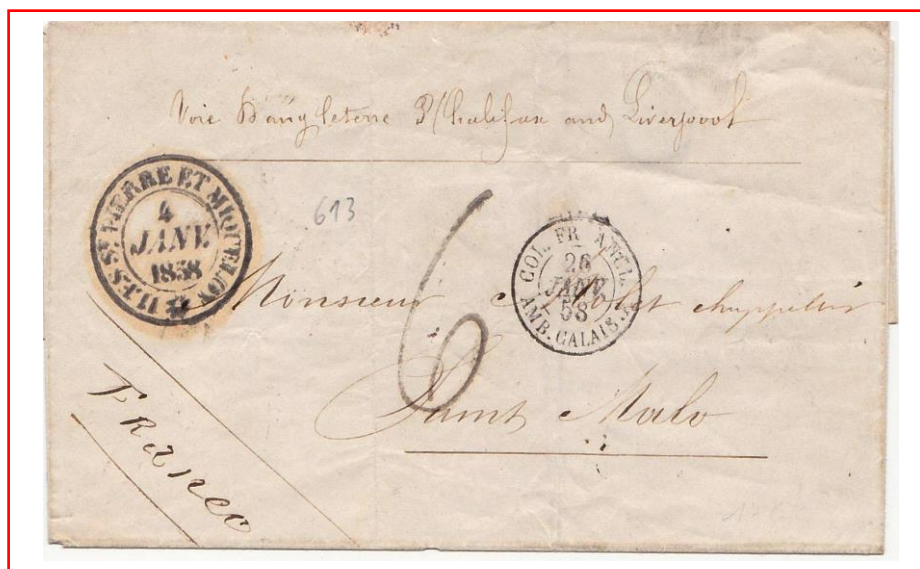 Voie D'angleterre P/ halifax and Liverpool
ILES St. PIERRE ET MIQUELON
4
JANV.
1858
613
6
COL. FR. ANGL.
26
JANV.
58
AMB. CALAIS.
Monsieur
Saint Malo
France